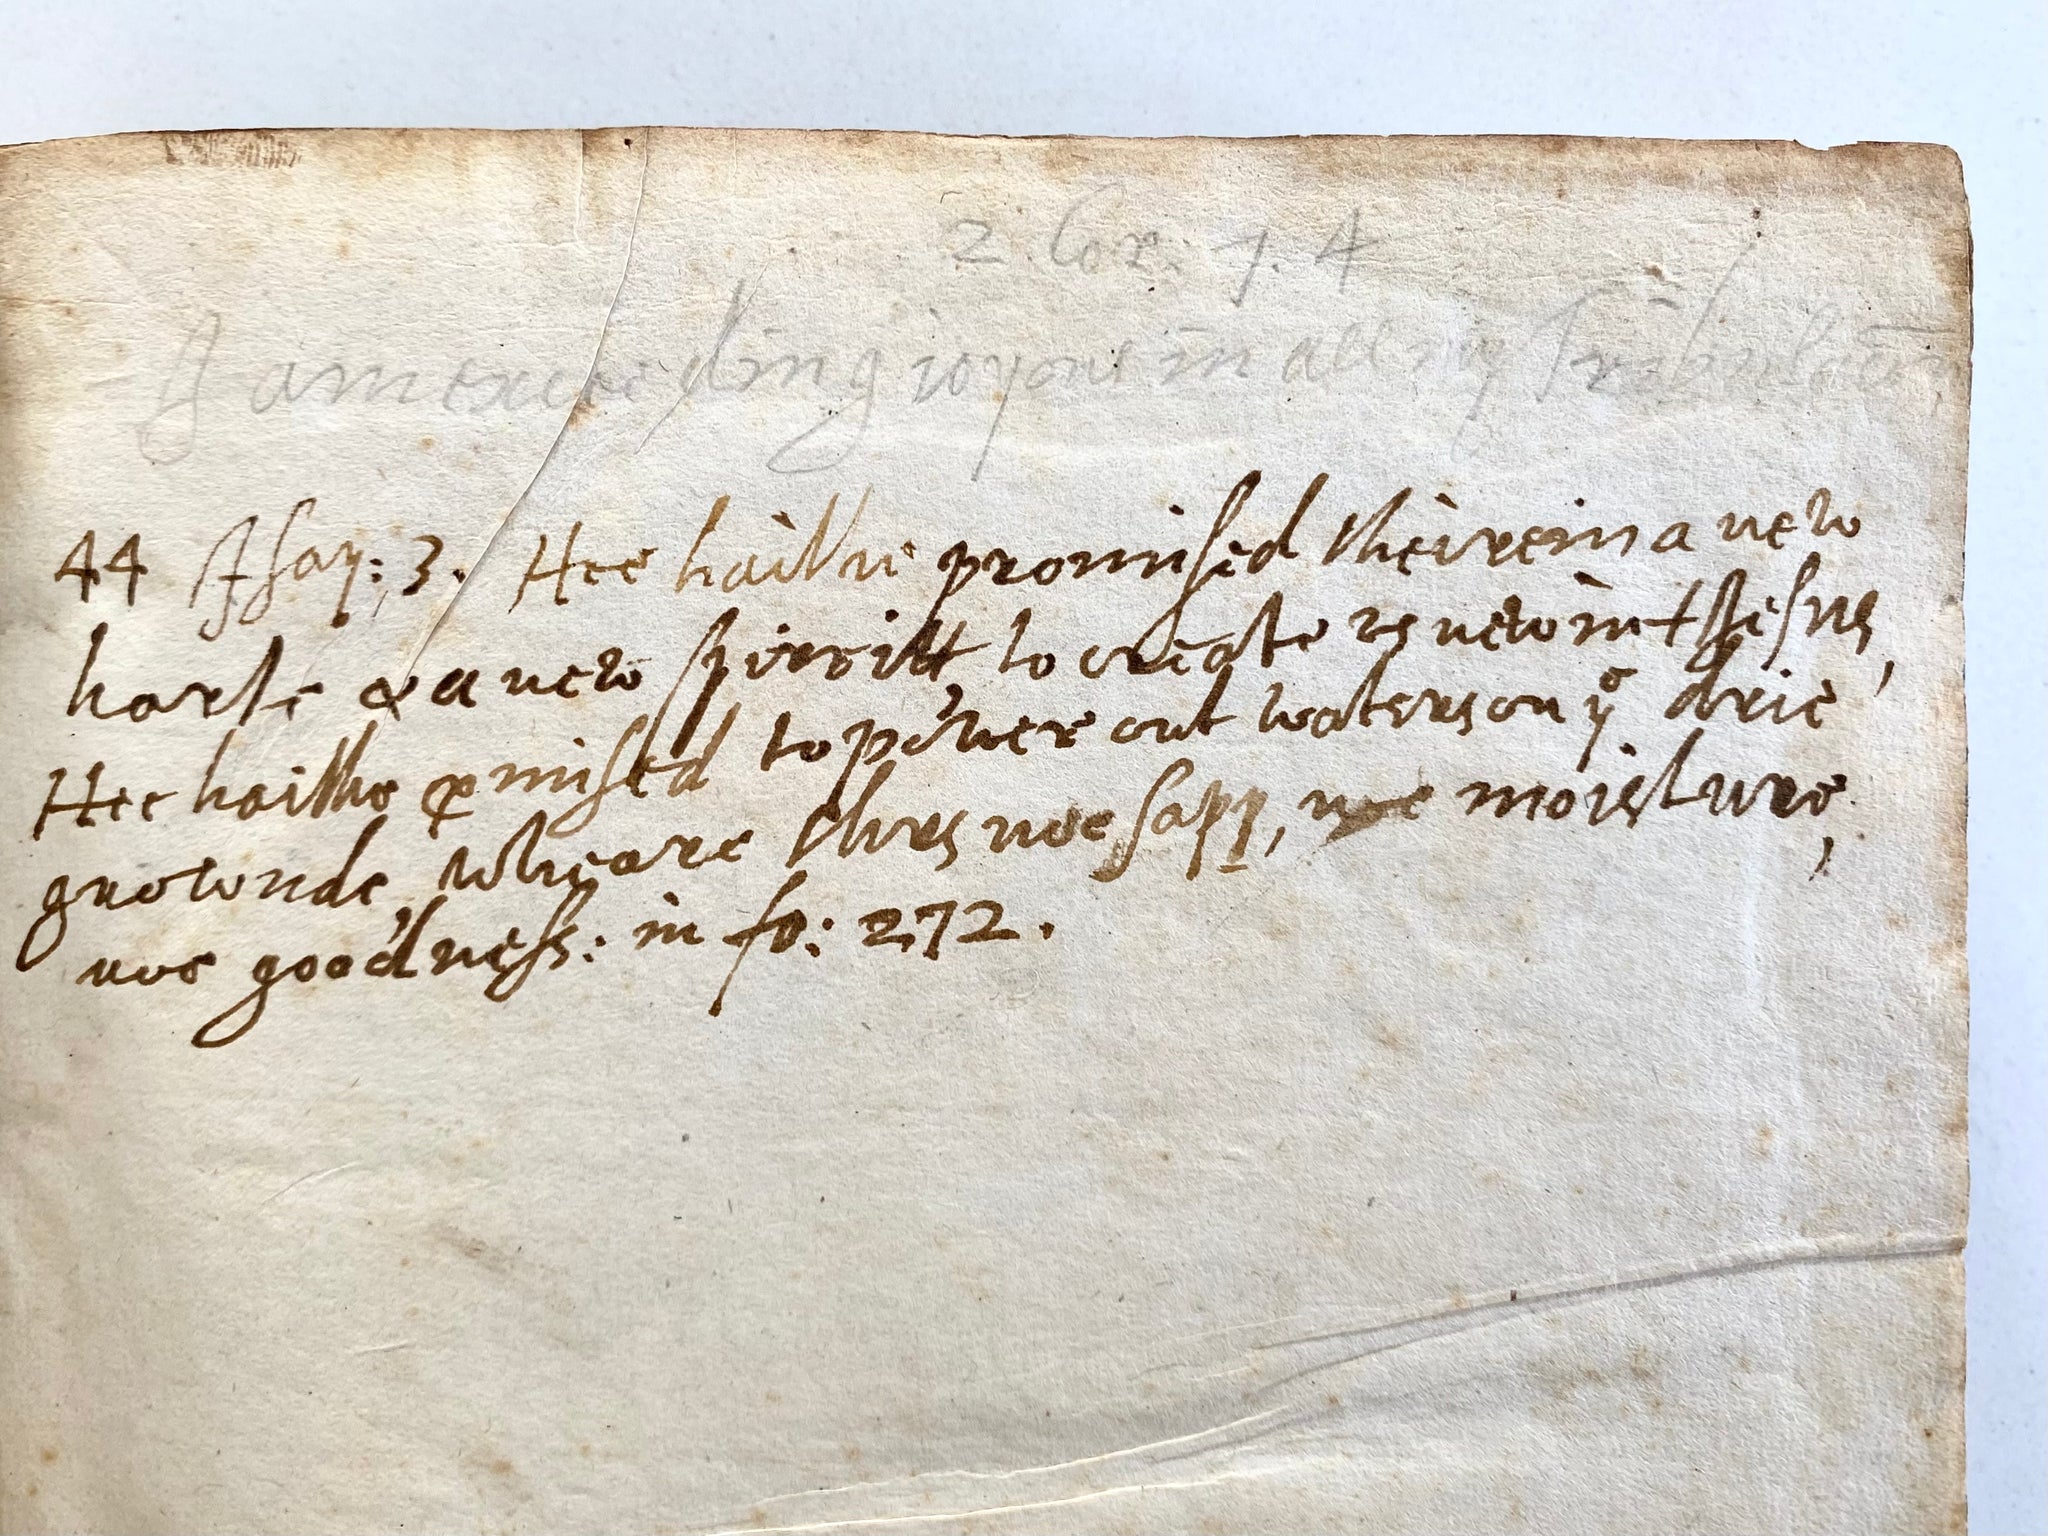 2. Cor. 7. 4
I am exceeding ioyous in all my Tribulation
44 Isay: 3. Hee haithe promised theirein a new
harte & a new spirritt, to create us new in + Iesus,
Hee haithe ꝑmised to power out waters on yͤ drie
growonde, wheare thris noe sapp, noe moisture,
noe goodness: in fo: 272.